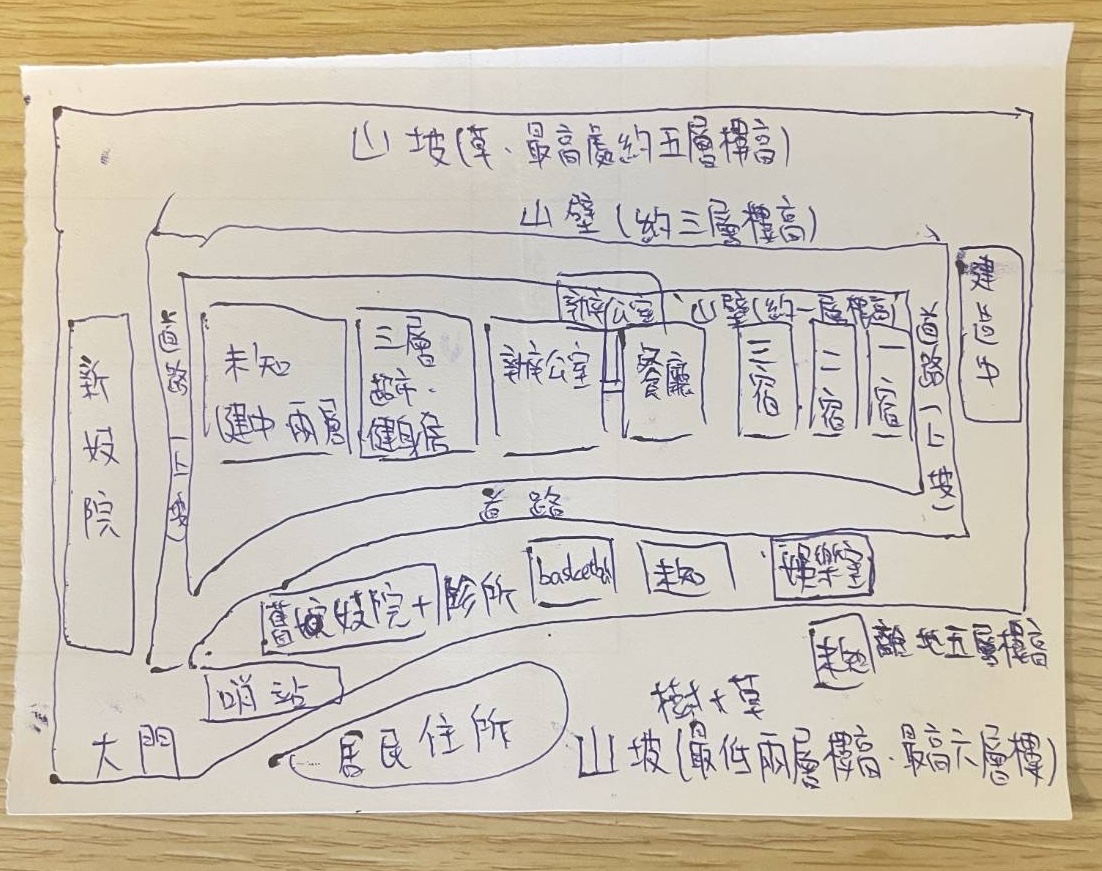 山坡(草、最高處約五層樓高)
山壁(約三層樓高)
建造中
辦公室
山壁(約一層樓高)
新妓院
道路(上坡)
未知
建中 兩層
三層
超市、
健身房
辦公室
餐廳
三宿
二宿
一宿
道路(上坡)
道路
舊妓院+診所
basketball
未知
娛樂室
未知
離地五層樓高
哨站
大門
居民住所
樹+草
山坡(最低兩層樓高、最高六層樓)